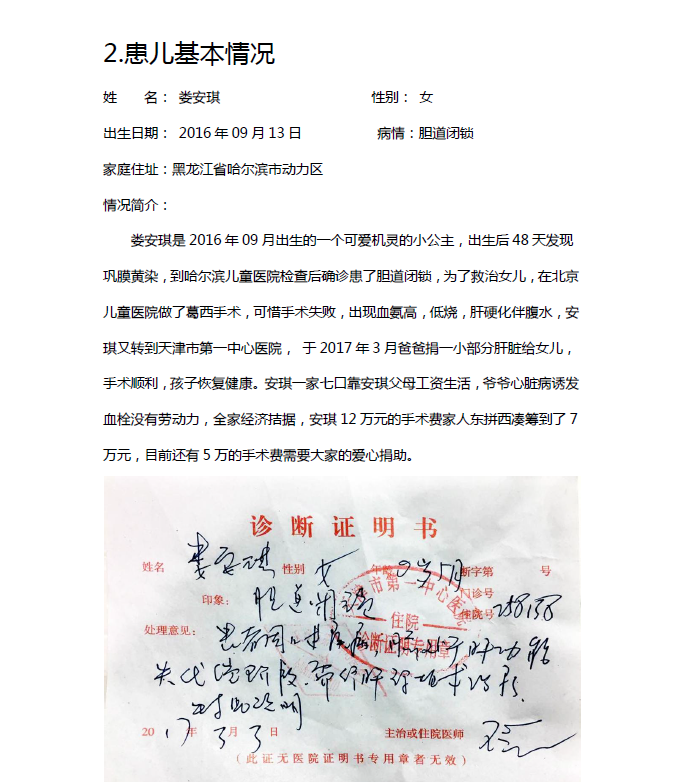 2.患儿基本情况
姓 名： 娄安琪 性别： 女
出生日期： 2016年09月13日 病情：胆道闭锁
家庭住址：黑龙江省哈尔滨市动力区
情况简介：
娄安琪是2016年09月出生的一个可爱机灵的小公主，出生后48天发现
巩膜黄染，到哈尔滨儿童医院检查后确诊患了胆道闭锁，为了救治女儿，在北京
儿童医院做了葛西手术，可惜手术失败，出现血氨高，低烧，肝硬化伴腹水，安
琪又转到天津市第一中心医院， 于2017年3月爸爸捐一小部分肝脏给女儿，
手术顺利，孩子恢复健康。安琪一家七口靠安琪父母工资生活，爷爷心脏病诱发
血栓没有劳动力，全家经济拮据，安琪12万元的手术费家人东拼西凑筹到了7
万元，目前还有5万的手术费需要大家的爱心捐助。
诊断证明书
姓名 娄安琪 性别 女 年龄 0岁5月 断字第 号
门诊号
印象： 胆道闭锁 住院号
市第一中心医院
住院
诊断证明专用章
处理意见： 患者因 肝功能
失代偿阶段.需行肝移植术治疗.
特此说明
2017年3月3日 主治或住院医师
(此证无医院证明书专用章者无效)